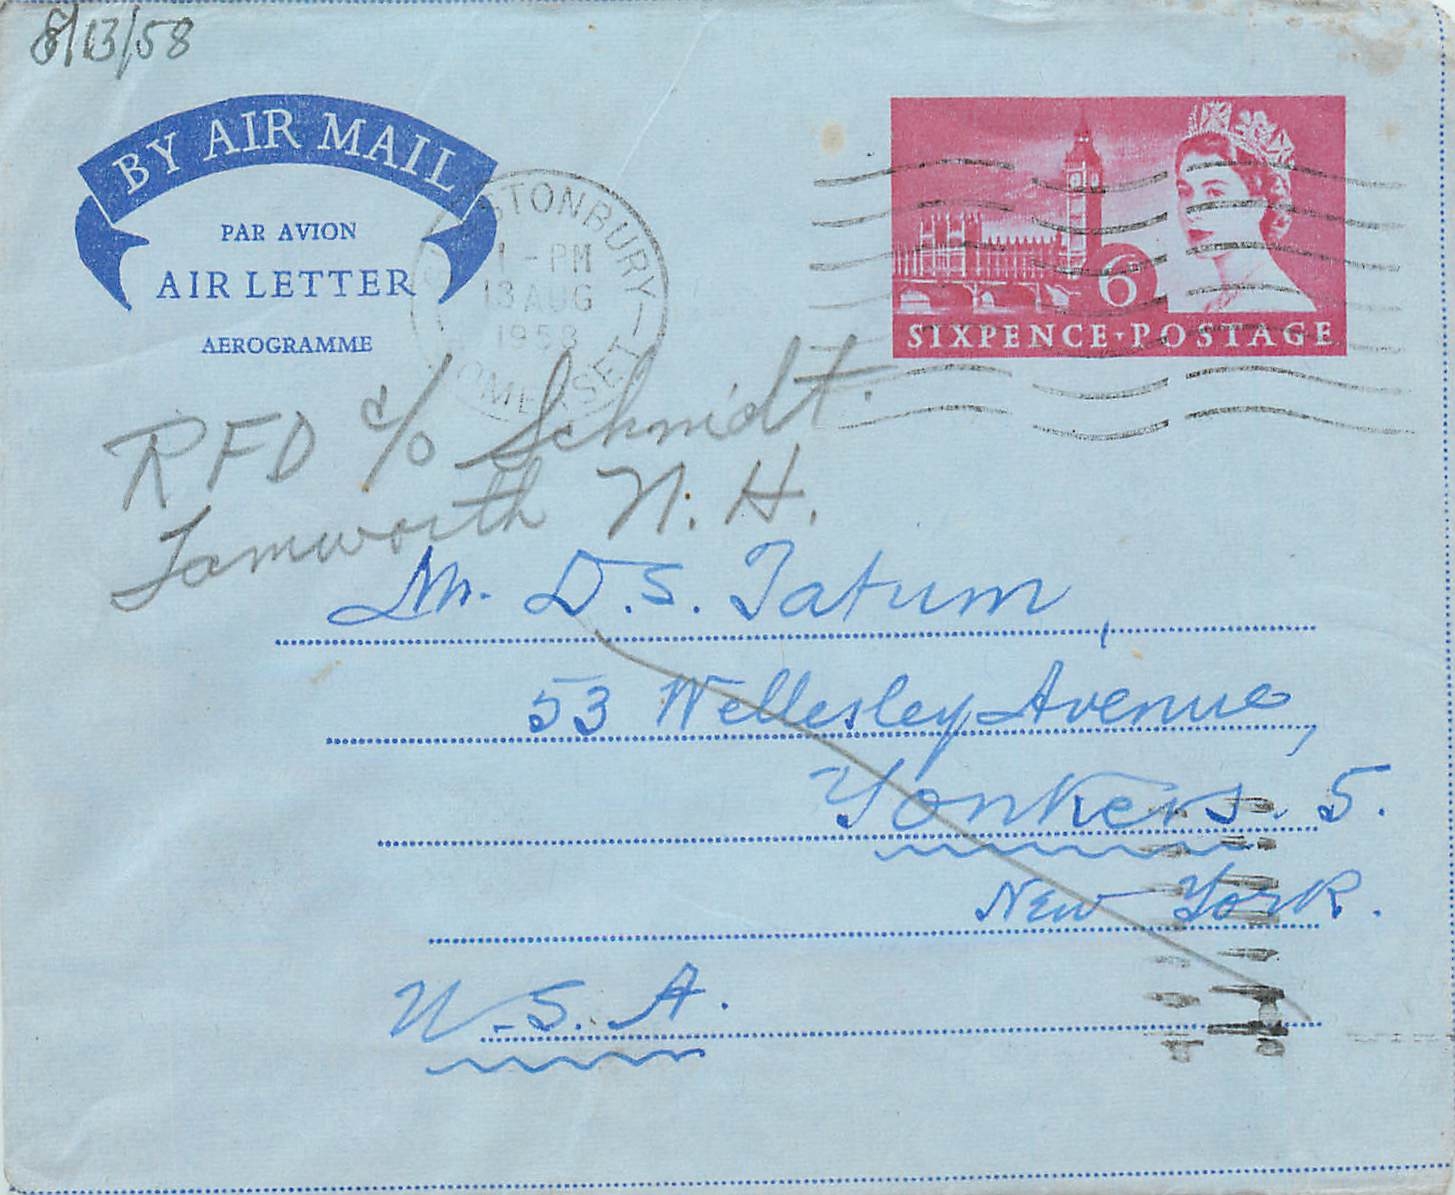 8/13/58
BY AIR MAIL
PAR AVION
AIR LETTER
AEROGRAMME
STONBURY
1 - PM
13 AUG
1958
SOMERSET
6D
SIXPENCE·POSTAGE
RFD c/o Schmidt.
Tamworth N. H.
Mr. D. S. Tatum,
53 Wellesley Avenue,
Yonkers. 5.
New York.
U. S. A.